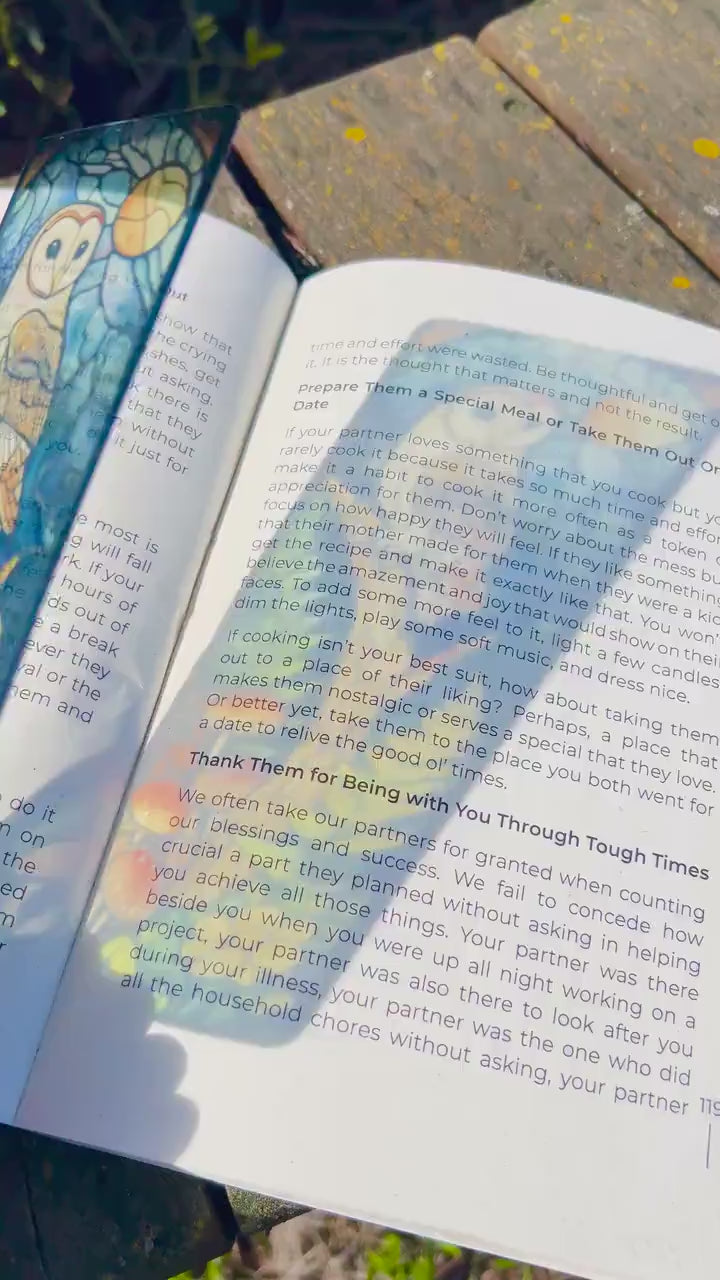 out
show that
he crying
shes, get
ut asking,
k there is
that they
without
it just for
you.
e most is
g will fall
rk. If your
hours of
ds out of
e a break
ever they
val or the
hem and
do it
n on
the
ed
m
r
time and effort were wasted. Be thoughtful and get o
it. It is the thought that matters and not the result.
Prepare Them a Special Meal or Take Them Out On
Date
If your partner loves something that you cook but yo
rarely cook it because it takes so much time and effor
make it a habit to cook it more often as a token o
appreciation for them. Don't worry about the mess bu
focus on how happy they will feel. If they like something
that their mother made for them when they were a kid
get the recipe and make it exactly like that. You won't
believe the amazement and joy that would show on their
faces. To add some more feel to it, light a few candles
dim the lights, play some soft music, and dress nice.
If cooking isn't your best suit, how about taking them
out to a place of their liking? Perhaps, a place that
makes them nostalgic or serves a special that they love.
Or better yet, take them to the place you both went for
a date to relive the good ol' times.
Thank Them for Being with You Through Tough Times
We often take our partners for granted when counting
our blessings and success. We fail to concede how
crucial a part they planned without asking in helping
you achieve all those things. Your partner was there
beside you when you were up all night working on a
project, your partner was also there to look after you
during your illness, your partner was the one who did
all the household chores without asking, your partner
119